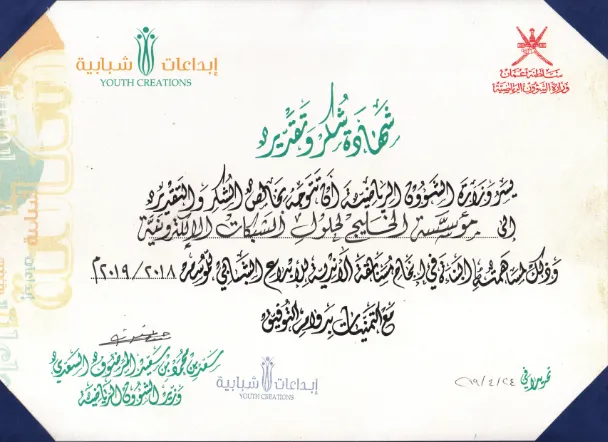 إبداعات شبابية
YOUTH CREATIONS
سلطنة عمان
وزارة الشؤون الرياضية
شهادة شكر وتقدير
يسر وزارة الشؤون الرياضية أن تتوجه بخالص الشكر والتقدير
إلى مؤسسة الخليج لحلول الشبكات الإلكترونية
وذلك لمساهمته البناءة في إنجاح مسابقة الأندية للإبداع الشبابي للموسم ٢٠١٨/٢٠١٩م
مع التمنيات بدوام التوفيق
سعد بن محمد بن سعيد المرضوف السعدي
وزير الشؤون الرياضية
إبداعات شبابية
YOUTH CREATIONS
تحريرا في ٢٤/٤/٢٠١٩